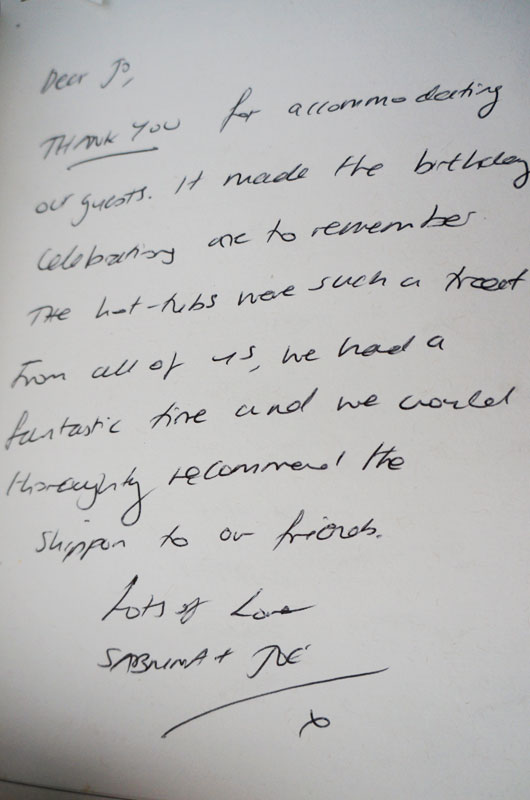 Dear Jo,
THANK YOU for accommodating
our guests. It made the birthday
celebrations one to remember
The hot-tubs were such a treat
From all of us, we had a
fantastic time and we would
thoroughly recommend the
Shippon to our friends.
Lots of Love
SABRINA + JOE
x